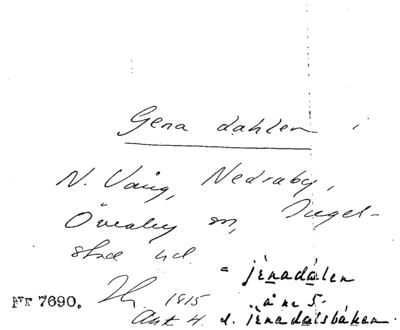 Gena dahlen i
N. Vång, Nedraby,
Övraby sn, Ingel-
stad hd.
= jènadálen
Nr 7690. Th. 1915 å nr 5.
Ant. 4. d. jènadalsbáken